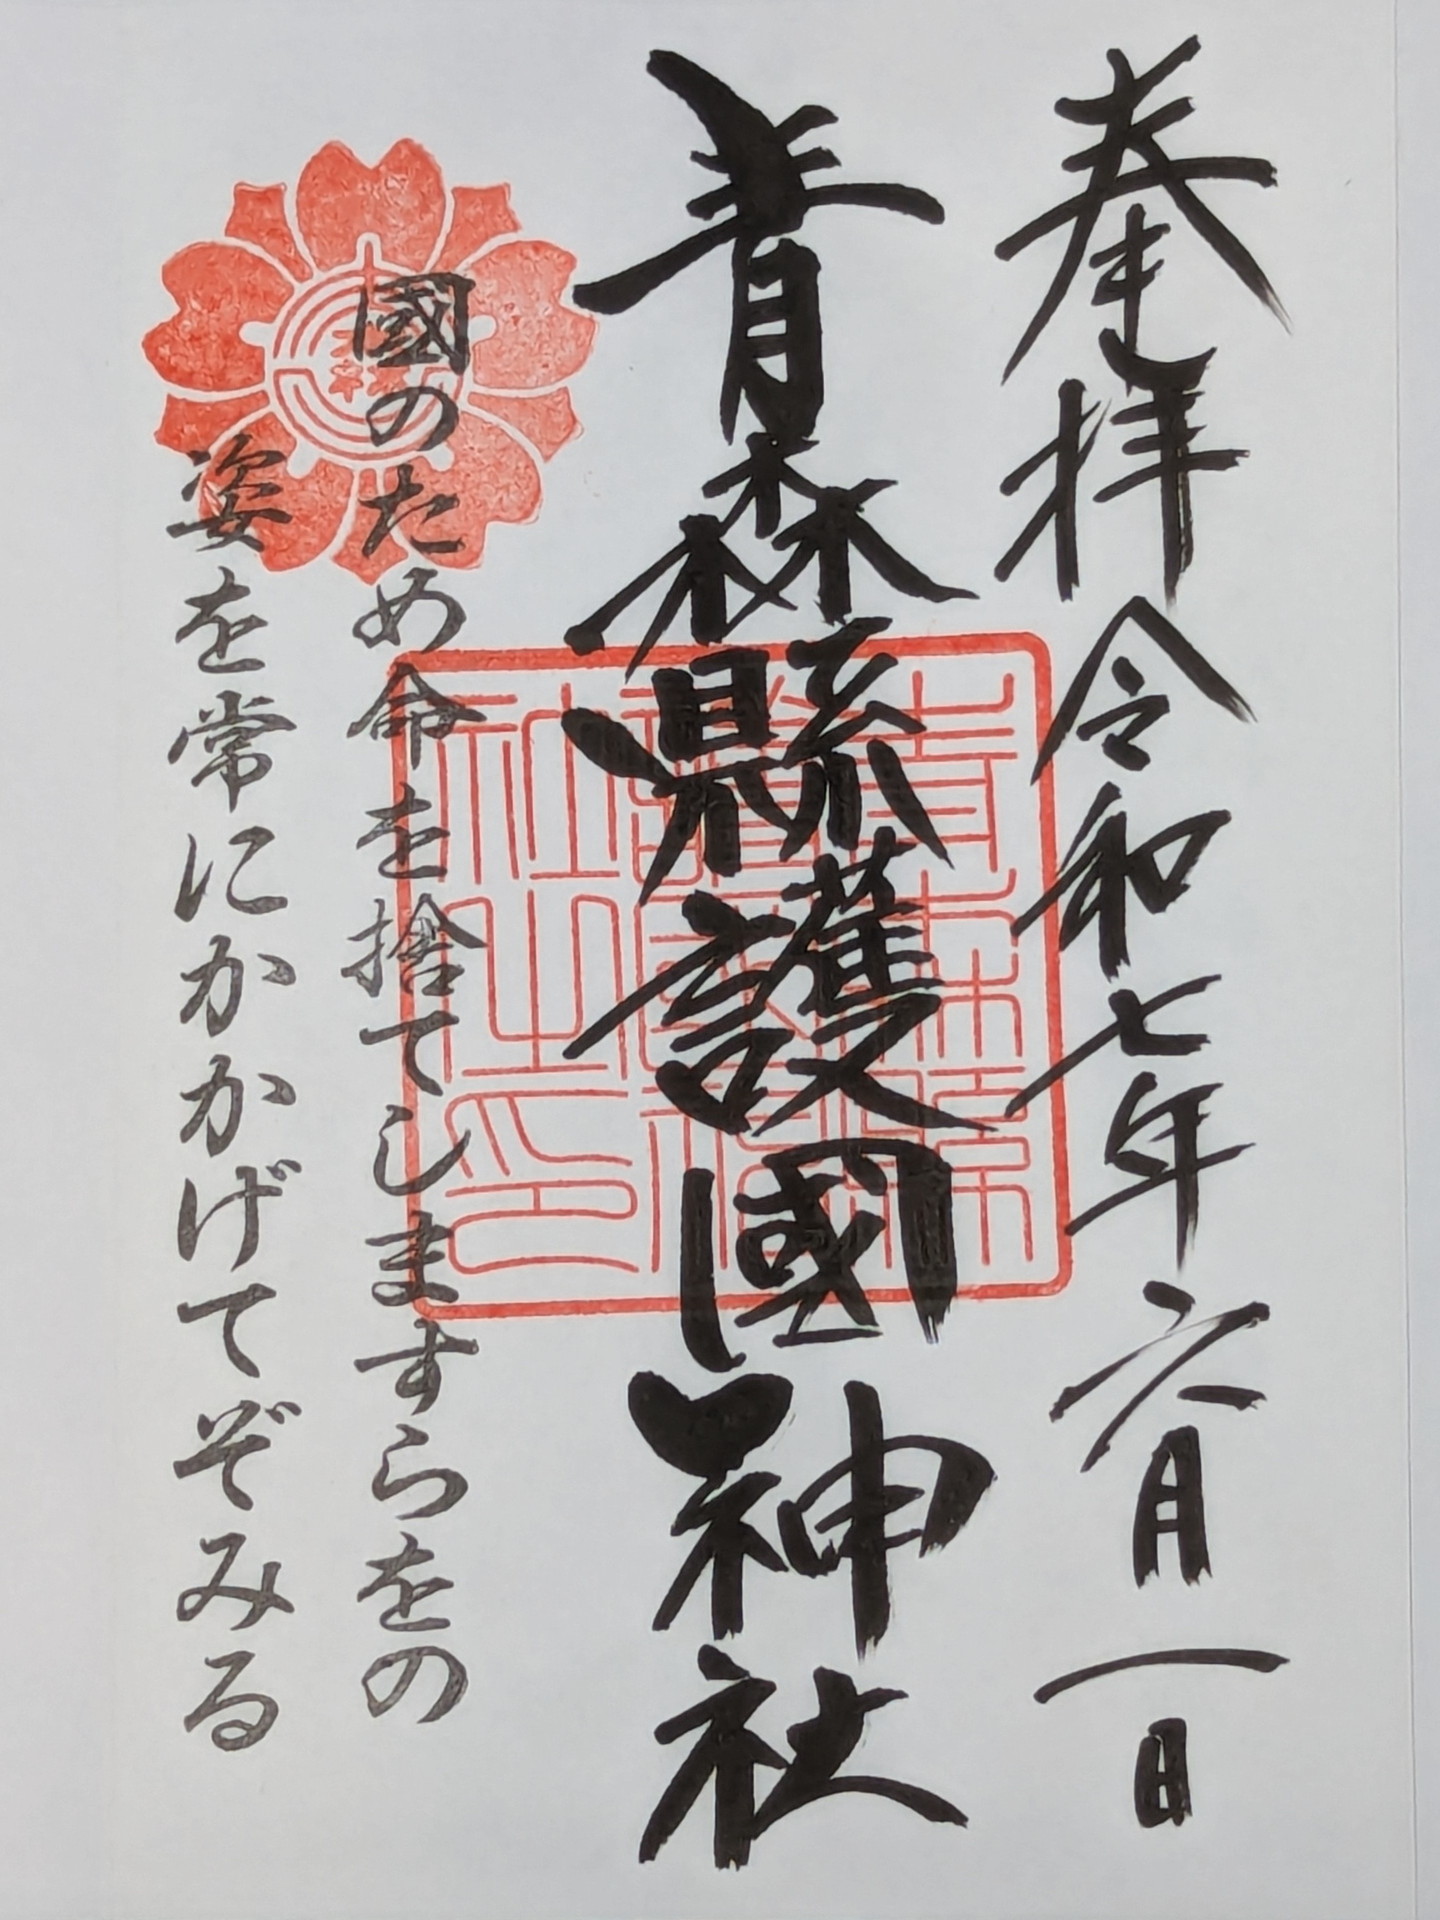 奉拝 令和七年六月一日
青森縣護國神社
國のため命を捨てしますらをの
姿を常にかかげてぞみる